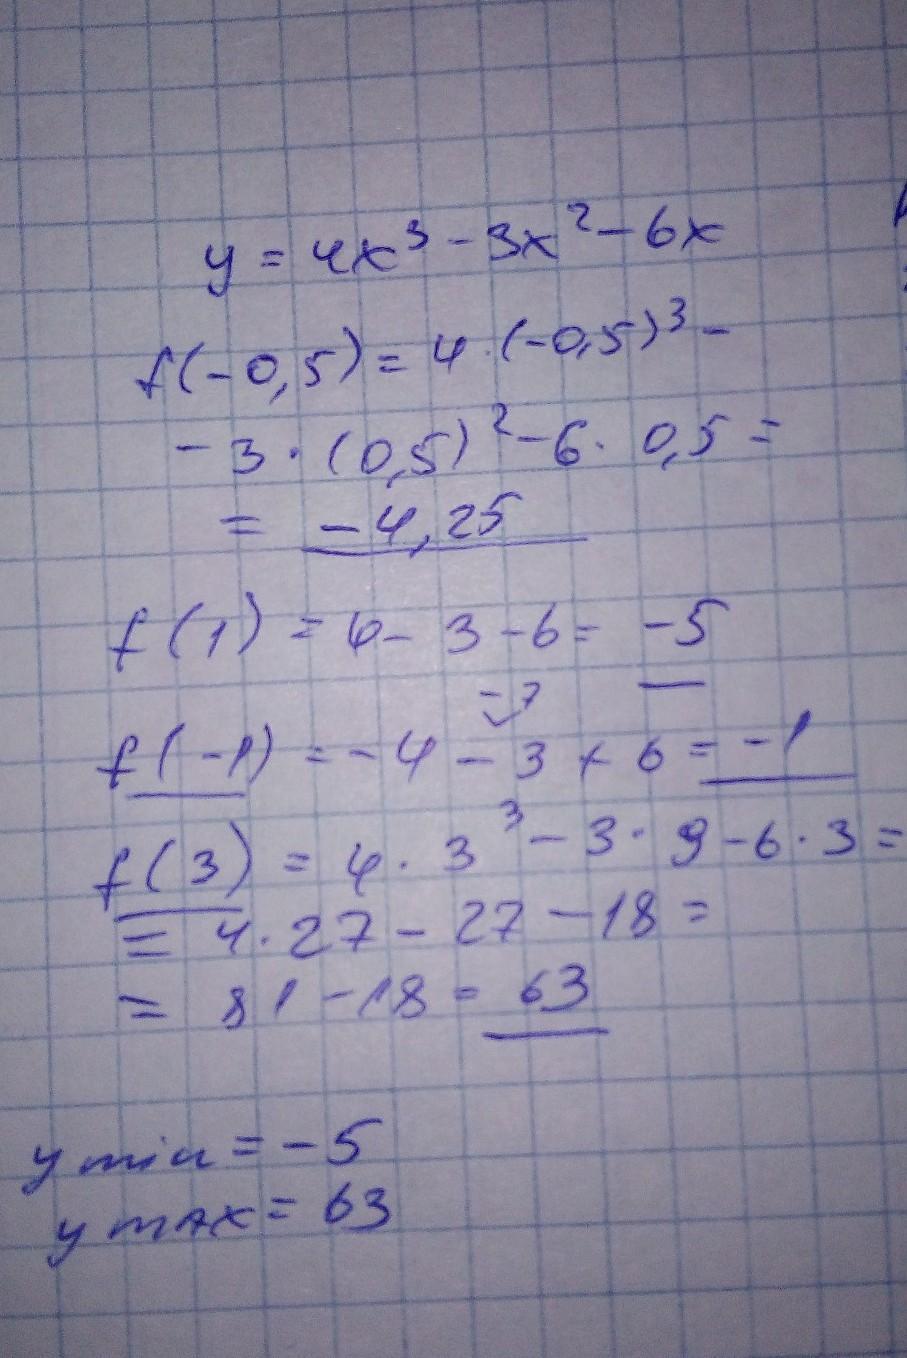 y = 4x³ - 3x² - 6x
f(-0,5) = 4 · (-0,5)³ -
- 3 · (0,5)² - 6 · 0,5 =
= -4,25
f(1) = 4 - 3 - 6 = -5
-7
f(-1) = -4 - 3 + 6 = -1
f(3) = 4 · 3³ - 3 · 9 - 6 · 3 =
= 4 · 27 - 27 - 18 =
= 81 - 18 = 63
y min = -5
y max = 63